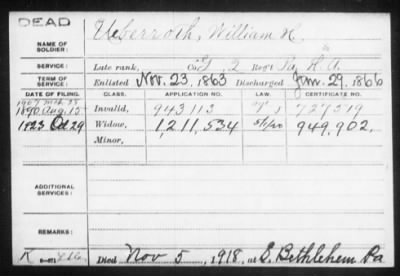 DEAD
Ueberroth, William H.
NAME OF SOLDIER:
SERVICE: Late rank, Co. 2 Regt Pa. H. A.
TERM OF SERVICE: Enlisted Nov. 23, 1863 Discharged Jan. 29, 1866
DATE OF FILING. CLASS. APPLICATION NO. LAW. CERTIFICATE NO.
1907
1890 Aug. 15 Invalid, 943113 727519
1923 Oct 29 Widow, 1,211,534 949,902.
Minor,
ADDITIONAL SERVICES:
Died Nov 5, 1918, at S. Bethlehem Pa